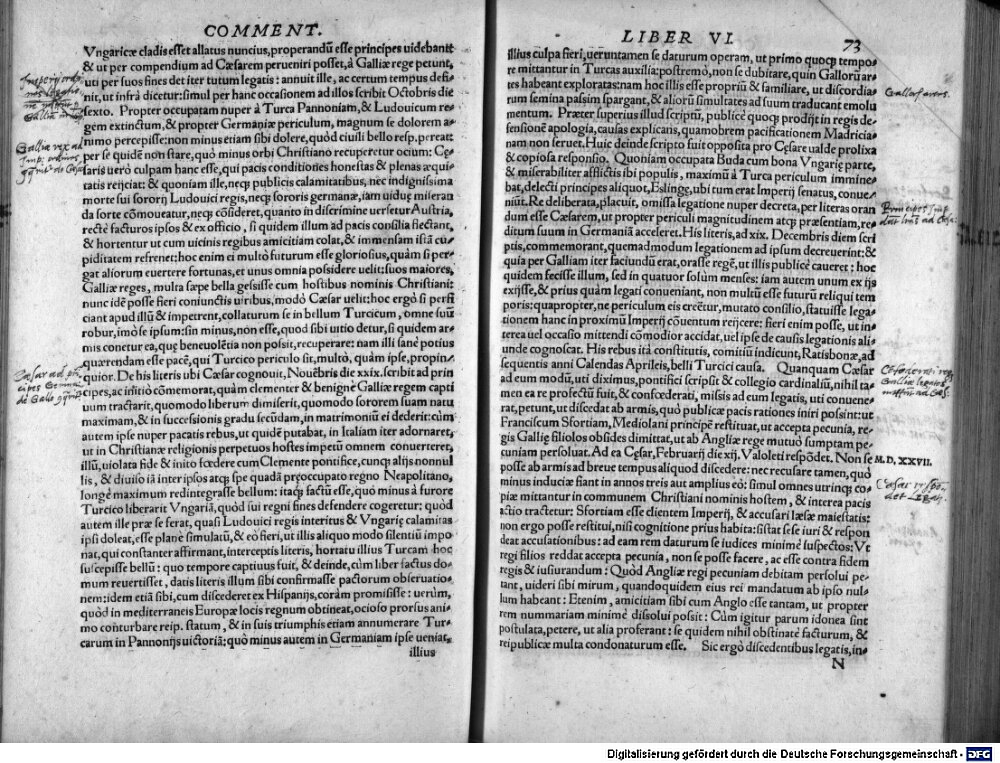 COMMENT.
Vngaricæ cladis esset allatus nuncius, properandũ esse principes uidebant
& ut per compendium ad Cæsarem perueniri posset, à Galliæ rege petunt,
uti per suos fines det iter tutum legatis: annuit ille, ac certum tempus defi-
nit, ut infrà dicetur: simul per hanc occasionem ad illos scribit Octobris die
sexto. Propter occupatam nuper à Turca Pannoniam, & Ludouicum re-
gem extinctum, & propter Germaniæ periculum, magnum se dolorem a-
nimo percepisse: non minus etiam sibi dolere, quòd ciuili bello resp. pereat:
per se quidẽ non stare, quò minus orbi Christiano recuperetur ocium: Cę-
saris uerò culpam hanc esse, qui pacis conditiones honestas & plenas æqui-
tatis reijciat: & quoniam ille, neqȝ publicis calamitatibus, nec indignissima
morte sui sororij Ludouici regis, neqȝ sororis germanæ, iam uiduę miseran
da sorte cõmoueatur, neqȝ cõsideret, quanto in discrimine uersetur Austria,
rectè facturos ipsos & ex officio, si quidem illum ad pacis consilia flectant,
& hortentur ut cum uicinis regibus amicitiam colat, & immensam istã cu-
piditatem refrenet: hoc enim ei multò futurum esse gloriosius, quàm si per-
gat aliorum euertere fortunas, et unus omnia possidere uelit: suos maiores,
Galliæ reges, multa sæpe bella gessisse cum hostibus nominis Christiani:
nunc idẽ posse fieri coniunctis uiribus, modò Cæsar uelit: hoc ergò si perfi
ciant apud illũ & impetrent, collaturum se in bellum Turcicum, omne suũ
robur, imò se ipsum: sin minus, non esse, quod sibi uitio detur, si quidem ar-
mis conetur ea, quę beneuolẽtia non possit, recuperare: nam illi sanè potius
quærendam esse pacẽ, qui Turcico periculo sit, multò, quàm ipse, propin-
quior. De his literis ubi Cæsar cognouit, Nouẽbris die xxix. scribit ad prin
cipes, ac initiò cõmemorat, quàm clementer & benignè Galliæ regem capti
uum tractarit, quomodo liberum dimiserit, quomodo sororem suam natu
maximam, & in successionis gradu secũdam, in matrimoniũ ei dederit: cùm
autem ipse nuper pacatis rebus, ut quidẽ putabat, in Italiam iter adornaret,
ut in Christianæ religionis perpetuos hostes impetũ omnem conuerteret,
illũ, uiolata fide & inito fœdere cum Clemente pontifice, cunqȝ alijs nonnul
lis, & diuisò iã inter ipsos atqȝ spe quadã preoccupato regno Neapolitano,
longè maximum redintegrasse bellum: itaqȝ factũ esse, quò minus à furore
Turcico liberarit Vngariã, quòd sui regni fines defendere cogeretur: quòd
autem ille præ se ferat, quasi Ludouici regis interitus & Vngarię calamitas
ipsi doleat, esse planè simulatũ, & eò fieri, ut illis aliquo modo silentiũ impo
nat, qui constanter affirmant, interceptis literis, hortatu illius Turcam hoc
suscepisse bellũ: quo tempore captiuus fuit, & deinde, cùm liber factus do-
mum reuertisset, datis literis illum sibi confirmasse pactorum obseruatio-
nem: idem etiã sibi, cum discederet ex Hispanijs, coràm promisisse: uerùm,
quòd in mediterraneis Europæ locis regnum obtineat, ocioso prorsus ani-
mo conturbare reip. statum, & in suis triumphis etiam annumerare Tur-
carum in Pannonijs uictoriã: quò minus autem in Germaniam ipse ueniat,
illius
LIBER VI. 73
illius culpa fieri, ueruntamen se daturum operam, ut primo quoqȝ tempo-
re mittantur in Turcas auxilia: postremò, non se dubitare, quin Gallorũ ar-
tes habeant exploratas: nam hoc illis esse propriũ & familiare, ut discordia-
rum semina passim spargant, & aliorũ simultates ad suum traducant emolu
mentum. Præter superius illud scriptũ, publicè quoqȝ prodijt in regis de-
fensionẽ apologia, causas explicans, quamobrem pacificationem Madricia-
nam non seruet. Huic deinde scripto fuit opposita pro Cęsare ualde prolixa
& copiosa responsio. Quoniam occupata Buda cum bona Vngarię parte,
& miserabiliter afflictis ibi populis, maximũ à Turca periculum immine-
bat, delecti principes aliquot, Eslingę, ubi tum erat Imperij senatus, conue-
niũt. Re deliberata, placuit, omissa legatione nuper decreta, per literas oran
dum esse Cæsarem, ut propter periculi magnitudinem atqȝ præsentiam, re-
ditum suum in Germaniã acceleret. His literis, ad xix. Decembris diem scri
ptis, commemorant, quemadmodum legationem ad ipsum decreuerint: &
quia per Galliam iter faciundũ erat, orasse regẽ, ut illis publicè caueret: hoc
quidem fecisse illum, sed in quatuor solùm menses: iam autem unum ex ijs
exijsse, & prius quàm legati conueniant, non multũ esse futurũ reliqui tem
poris: quapropter, ne periculum eis creẽtur, mutato consilio, statuisse lega-
tionem hanc in proximũ Imperij cõuentum reijcere: fieri enim posse, ut in-
terea uel occasio mittendi cõmodior accidat, uel ipse de causis legationis ali-
unde cognoscat. His rebus ità constitutis, comitiũ indicunt, Ratisbonæ, ad
sequentis anni Calendas Aprileis, belli Turcici causa. Quanquam Cæsar
ad eum modũ, uti diximus, pontifici scripsit & collegio cardinaliũ, nihil ta-
men ea re profectũ fuit, & confœderati, missis ad eum legatis, uti conuene-
rat, petunt, ut discedat ab armis, quò publicæ pacis rationes iniri possint: ut
Franciscum Sfortiam, Mediolani principẽ restituat, ut accepta pecunia, re-
gis Gallię filiolos obsides dimittat, ut ab Angliæ rege mutuò sumptam pe-
cuniam persoluat. Ad ea Cęsar, Februarij die xij. Valoleti respõdet. Non se M. D. XXVII.
posse ab armis ad breue tempus aliquod discedere: nec recusare tamen, quò
minus induciæ fiant in annos treis aut amplius eò: simul omnes utrinqȝ co-
piæ mittantur in communem Christiani nominis hostem, & interea pacis
actio tractetur: Sfortiam esse clientem Imperij, & accusari læsæ maiestatis:
non ergo posse restitui, nisi cognitione prius habita: sistat se se iuri & respon
deat accusationibus: ad eam rem daturum se iudices minimè suspectos: Vt
regi filios reddat accepta pecunia, non se posse facere, ac esse contra fidem
regis & iusiurandum: Quòd Angliæ regi pecuniam debitam persolui pe-
tant, uideri sibi mirum, quandoquidem eius rei mandatum ab ipso nul-
lum habeant: Etenim, amicitiam sibi cum Anglo esse tantam, ut propter
rem nummariam minimè dissolui possit: Cùm igitur parum idonea sint
postulata, petere, ut alia proferant: se quidem nihil obstinatè facturum, &
reipublicæ multa condonaturum esse. Sic ergò discedentibus legatis, in-
N
Digitalisierung gefördert durch die Deutsche Forschungsgemeinschaft - DFG